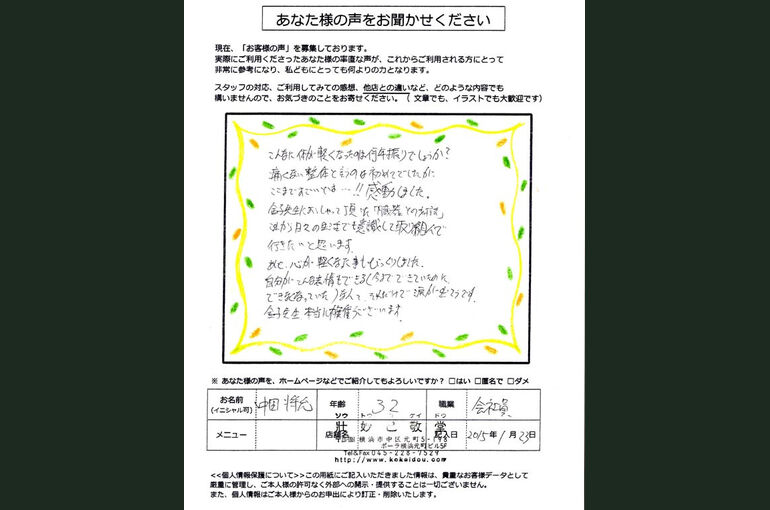 あなた様の声をお聞かせください
現在、「お客様の声」を募集しております。
実際にご利用くださったあなた様の率直な声が、これからご利用される方にとって
非常に参考になり、私どもにとっても何よりの力となります。
スタッフの対応、ご利用してみての感想、他店との違いなど、どのような内容でも
構いませんので、お気づきのことをお寄せください。（ 文章でも、イラストでも大歓迎です）
こんなに体が軽くなったのは何年振りでしょうか？
痛くない整体というのは初めてでしたが
ここまですごいとは…!!感動しました。
金子先生におっしゃって頂いた「臓器との対話」
は日々の生活でも意識して取り組んで
行きたいと思います。
あと、心が軽くなった事もびっくりしました。
自分がこんな表情もできる(今までできていたものに
金子先生 本当に有難うございます。
※ あなた様の声を、ホームページなどでご紹介してもよろしいですか？ □はい □匿名で □ダメ
お名前 (イニシャル可) 中田 年齢 32 職業 会社員
メニュー 店舗名 敬堂 記入日 2015年1月23日
横浜市中区元町5-198
ポーラ横浜元町ビル5F
Tel&Fax 045-228-7529
http://www.kokeidou.com
<<個人情報保護について>>この用紙にご記入いただきました情報は、貴重なお客様データとして
厳重に管理し、ご本人様の許可なく外部への開示・提供することは一切ございません。
また、個人情報はご本人様からのお申出により訂正・削除いたします。